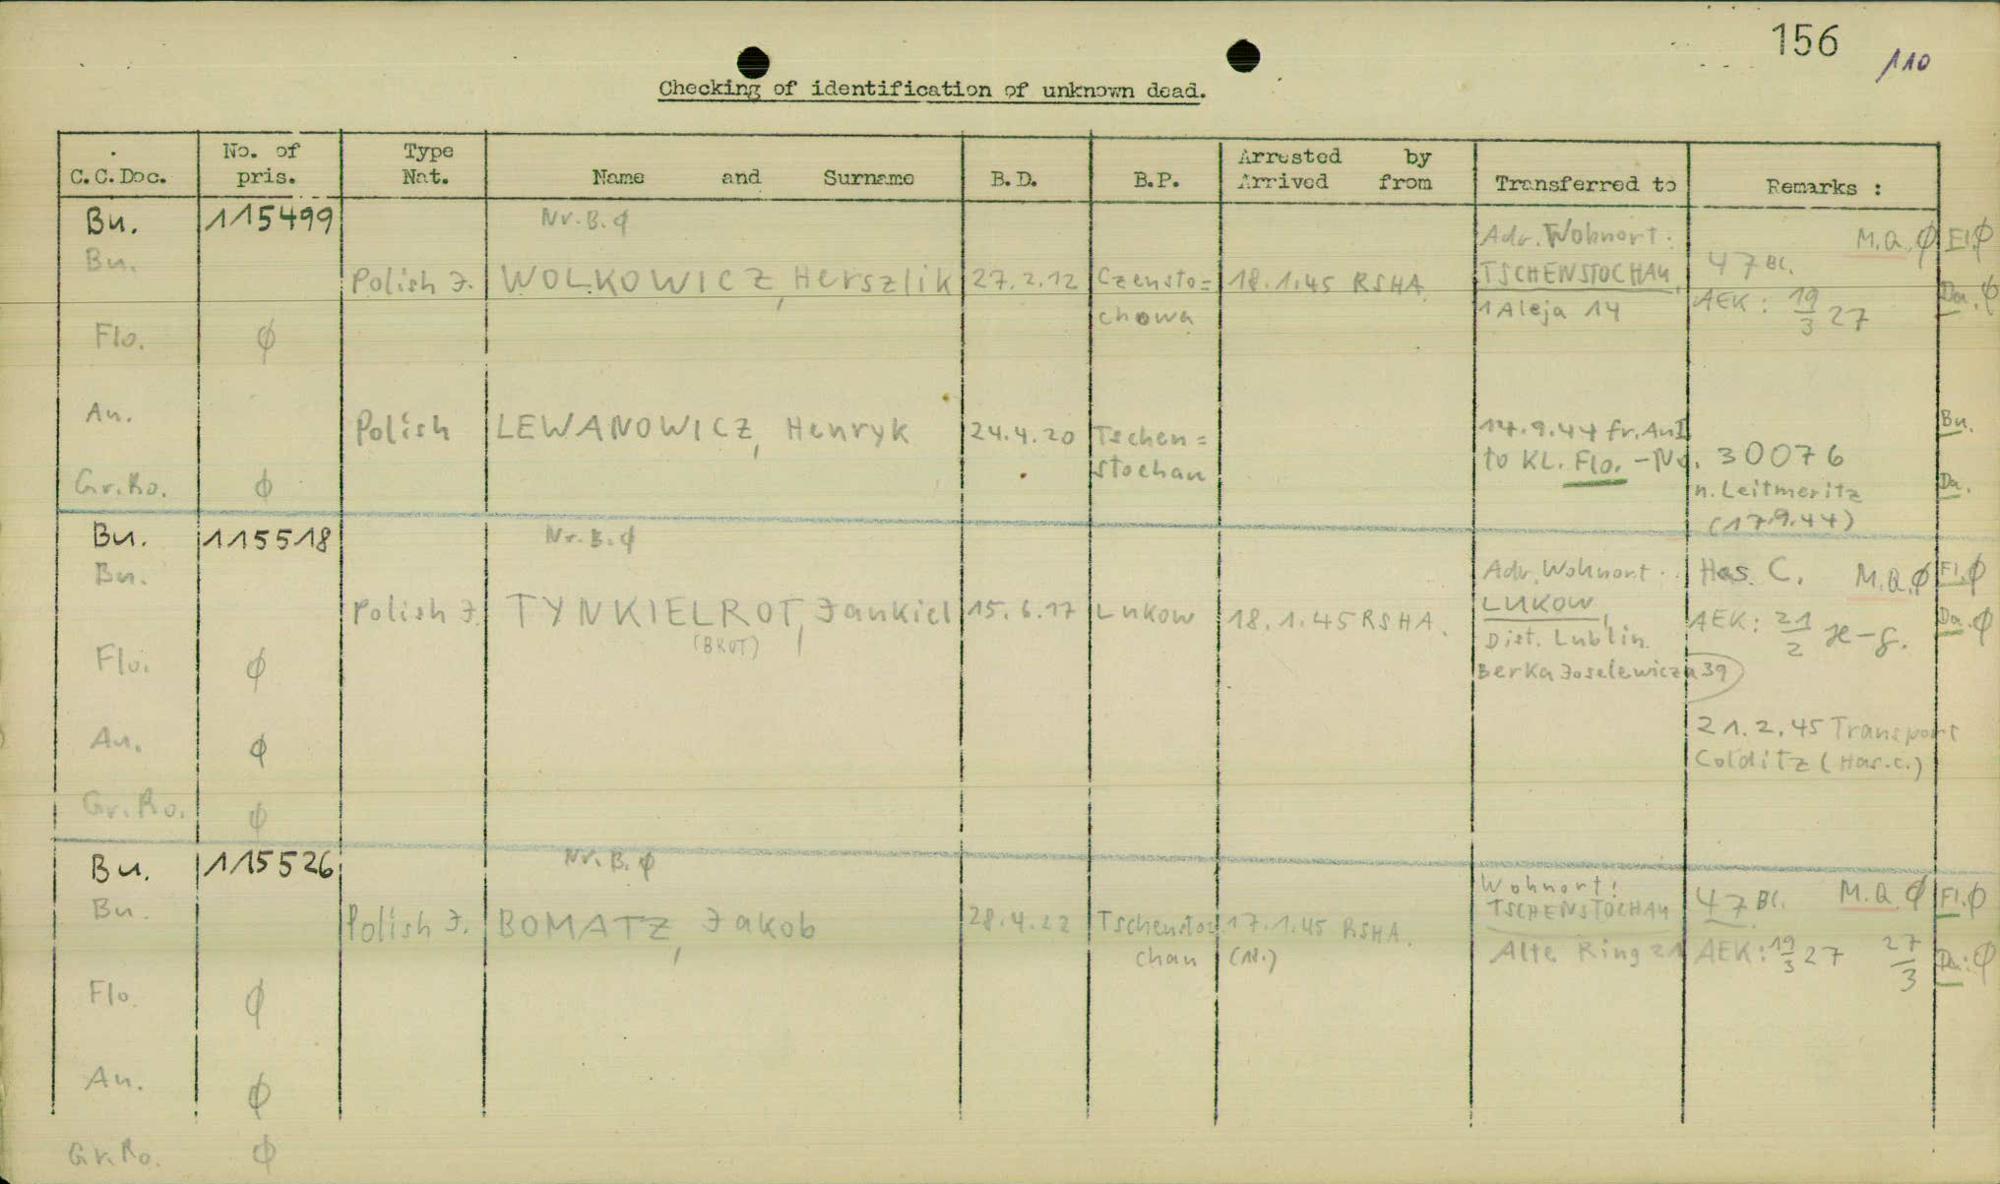 156
110
Checking of identification of unknown dead.
C.C.Doc. No. of pris. Type Nat. Name and Surname B.D. B.P. Arrested by Arrived from Transferred to Remarks :
Bu. 115499 Nr.B.ϕ Adr. Wohnort: M.Q.ϕ Fl.ϕ
Bu. Polish J. WOLKOWICZ, Herszlik 27.2.12 Czensto= 18.1.45 RSHA. TSCHENSTOCHAU, 47 Bl.
chowa 1 Aleja 14 AEK: 19/3 27 Da.ϕ
Flo. ϕ
An. Polish LEWANOWICZ, Henryk 24.4.20 Tschen= 14.9.44 fr.AuI Bu.
stochau to KL. Flo. - No. 30076
Gr.Ro. ϕ n. Leitmeritz Da.
(17.9.44)
Bu. 115518 Nr.B.ϕ Adr. Wohnort: Has. C. M.Q.ϕ Fl.ϕ
Bu. Polish J. TYNKIELROT, Jankiel 15.6.17 Lukow 18.1.45 RSHA. LUKOW, AEK: 21/2 Da.ϕ
(BROT) Dist. Lublin.
Flo. ϕ Berka Joselewicza 39
An. ϕ 21.2.45 Transport
Colditz (Has.c.)
Gr.Ro. ϕ
Bu. 115526 Nr.B.ϕ Wohnort: 47 Bl. M.Q.ϕ Fl.ϕ
Bu. Polish J. BOMATZ, Jakob 28.4.22 Tschensto= 17.1.45 RSHA. TSCHENSTOCHAU
chau (18.) Alte Ring 21 AEK: 19/3 27 27/3 Da:ϕ
Flo. ϕ
An. ϕ
Gr.Ro. ϕ